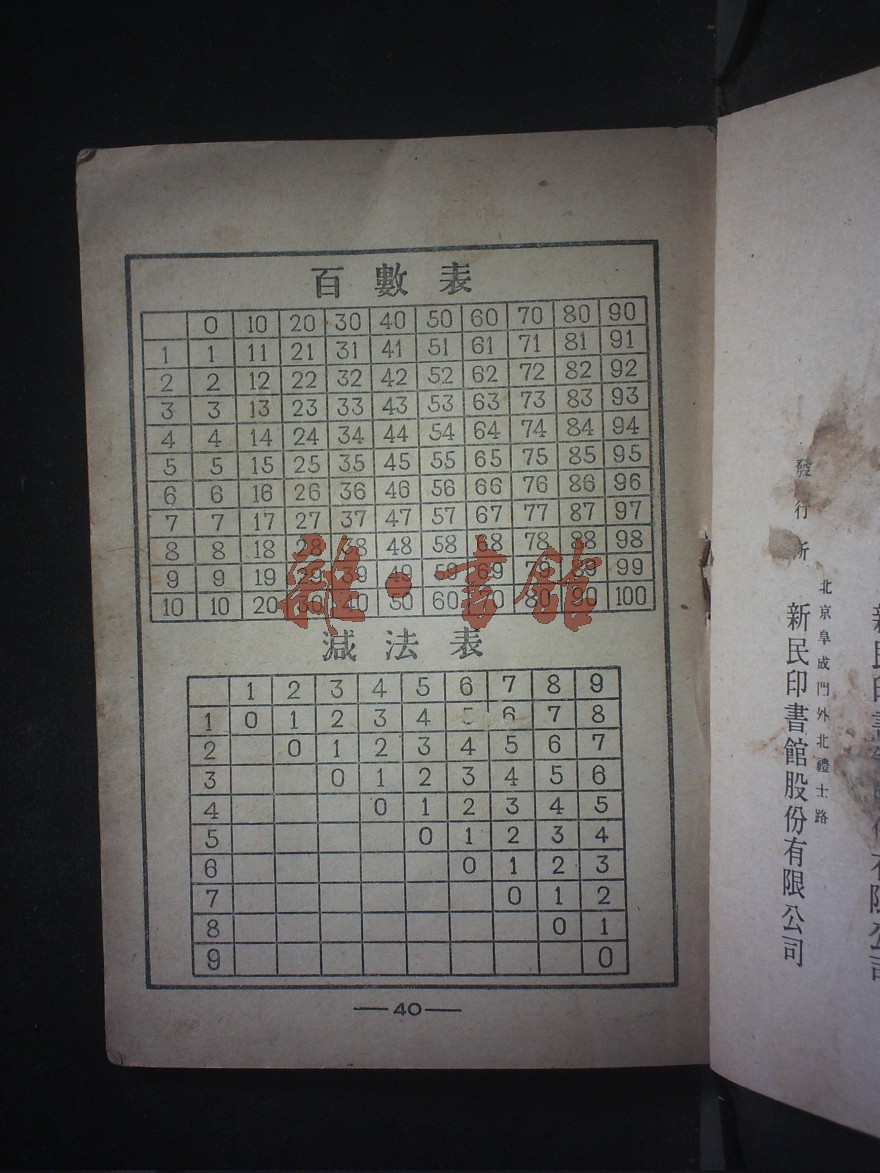 百數表
0 10 20 30 40 50 60 70 80 90
1 1 11 21 31 41 51 61 71 81 91
2 2 12 22 32 42 52 62 72 82 92
3 3 13 23 33 43 53 63 73 83 93
4 4 14 24 34 44 54 64 74 84 94
5 5 15 25 35 45 55 65 75 85 95
6 6 16 26 36 46 56 66 76 86 96
7 7 17 27 37 47 57 67 77 87 97
8 8 18 28 38 48 58 68 78 88 98
9 9 19 29 39 49 59 69 79 89 99
10 10 20 30 40 50 60 70 80 90 100
減法表
1 2 3 4 5 6 7 8 9
1 0 1 2 3 4 5 6 7 8
2 0 1 2 3 4 5 6 7
3 0 1 2 3 4 5 6
4 0 1 2 3 4 5
5 0 1 2 3 4
6 0 1 2 3
7 0 1 2
8 0 1
9 0
—40—
發行所
北京阜成門外北禮士路
新民印書館股份有限公司